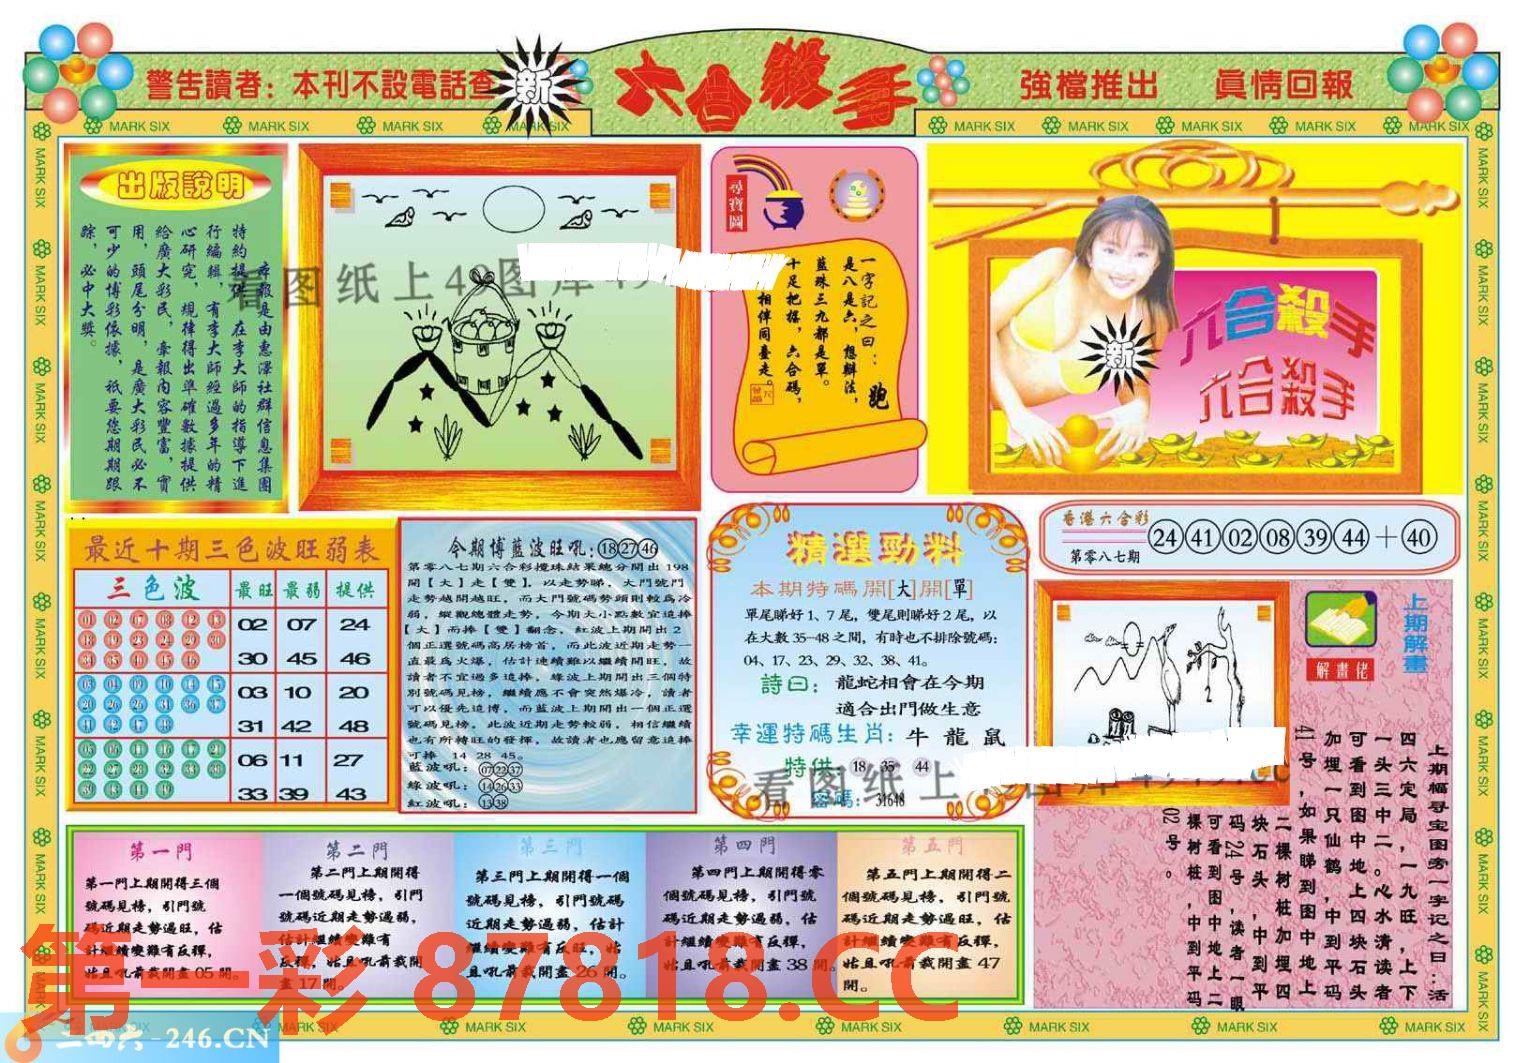 警告讀者：本刊不設電話查
新
六合殺手
強檔推出 眞情回報
MARK SIX
出版說明
特約提供，在李大師的指導下進
行編輯，有李大師經過多年的精
心研究，規律得出準確數據提供
給廣大彩民，
用，頭尾分明，是廣大彩民必不
可少的博彩依據，祇要您期期跟
踪，必中大獎。
尋寶圖
一字記之曰：跑
是八是六，想辦法，
藍珠三九都是單。
十足把握，六合碼，
相伴同臺走。
六合殺手
六合殺手
新
最近十期三色波旺弱表
三色波 最旺 最弱 提供
02 07 24
30 45 46
03 10 20
31 42 48
06 11 27
33 39 43
今期博藍波旺吼：18 27 46
第零八七期六合彩攪珠結果總分開出198
開【大】走【雙】。以走勢睇，大門號門
走勢越開越旺，而大門號碼勢頭則較為冷
弱，縱觀總體走勢，今期大小點數宜追捧
【大】而捧【雙】翻念。紅波上期開出2
個正選號碼高居榜首，而此波近期走勢一
直最為火爆，估計連續難以繼續開旺，故
讀者不宜過多追捧，綠波上期開出三個特
別號碼見榜，繼續應不會突然爆冷，讀者
可以優先追博，而藍波上期開出一個正選
號碼見榜，此波近期走勢較弱，相信繼續
也有所轉旺的發揮，故讀者也應留意追捧
可捧 14 28 45。
藍波吼：07 22 37
綠波吼：14 26 33
紅波吼：13 38
精選勁料
本期特碼開[大]開[單]
單尾睇好1、7尾，雙尾則睇好2尾，以
在大數35—48之間，有時也不排除號碼：
04、17、23、29、32、38、41。
詩曰：龍蛇相會在今期
適合出門做生意
幸運特碼生肖：牛 龍 鼠
特供：18 35 44
密碼：31648
香港六合彩
第零八七期
24 41 02 08 39 44 + 40
上期解畫
解畫佬
上期幅寻宝图旁一字记之曰：活
四六定局，一九旺，上下
一头三中二。心水清读者
可看到图中地上四块石头
加埋一只仙鹤，中到平码
41号，如果睇到图中地上
二棵树桩加埋四
块石头，中到平
码24号，读者一眼
可看到图中地上二
棵树桩，中到平码
02号。
第一門
第一門上期開得三個
號碼見榜，引門號
碼近期走勢過旺，估
計繼續變難有反彈，
姑且吼前裁開盡05開。
第二門
第二門上期開得
一個號碼見榜，引門
號碼近期走勢過弱，
估計繼續變難有
反彈，姑且吼前裁開
盡17開。
第三門
第三門上期開得一個
號碼見榜，引門號碼
近期走勢過弱，估計
繼續變難有反旺，姑
且吼前裁開盡26開。
第四門
第四門上期開得零
個號碼見榜，引門號
碼近期走勢過弱，估
計繼續變難有反彈，
姑且吼前裁開盡38開。
第五門
第五門上期開得二
個號碼見榜，引門號
碼近期走勢過旺，估
計繼續變難有反彈，
姑且吼前裁開盡47
開。
看图纸上49图库49
看图纸上
第一彩 87818.CC
二四六-246.CN